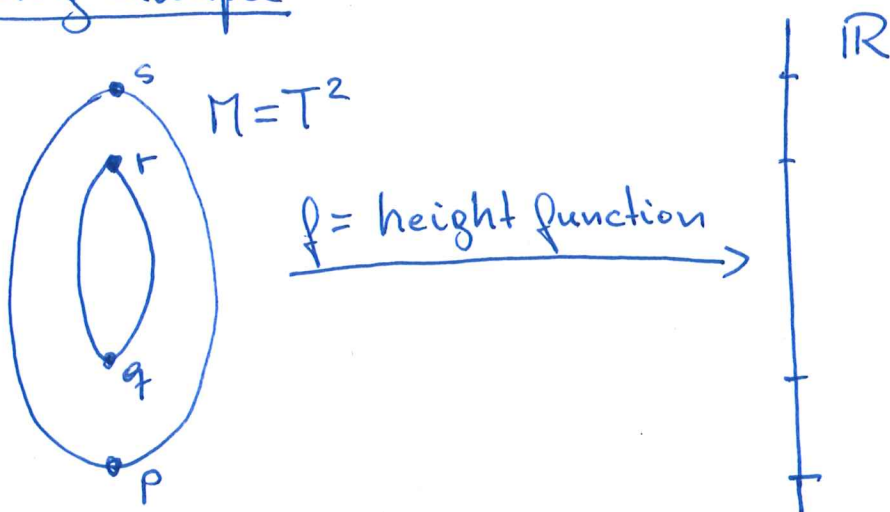 s
M = T²
ℝ
r
f = height function
q
p